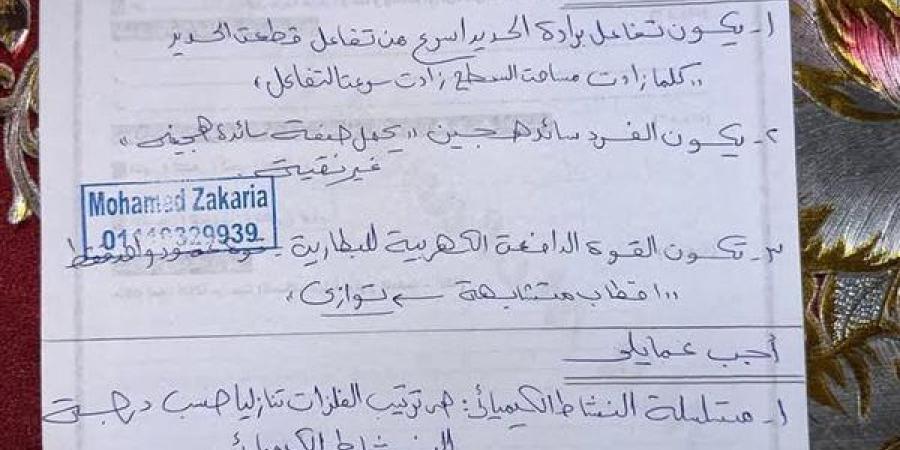 ١- يكون تفاعل برادة الحديد اسرع من تفاعل قطعة الحديد
,, كلما زادت مساحة السطح زادت سرعة التفاعل ,,
٢- يكون الفرد سائد هجين ,, يحمل صفة سائدة هجينة ,,
غير نقية
Mohamed Zakaria
٣- تكون القوة الدافعة الكهربية للبطارية = قوة عمود واحد فقط
,, اقطاب متشابهة ← توازى ,,
أجب عمايلى
١- متسلسلة النشاط الكيميائى: هى ترتيب الفلزات تنازليا حسب درجة
النشاط الكيميائى